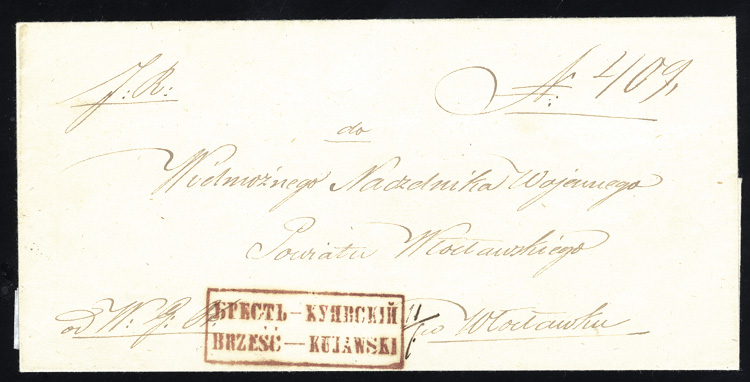 J: R: № 409,
do
Wielmożnego Naczelnika Wojennego
Powiatu Włocławskiego
БРЕСТЬ – КУЯВСКІЙ
BRZEŚĆ — KUJAWSKI
od W: 11/ Włocławku